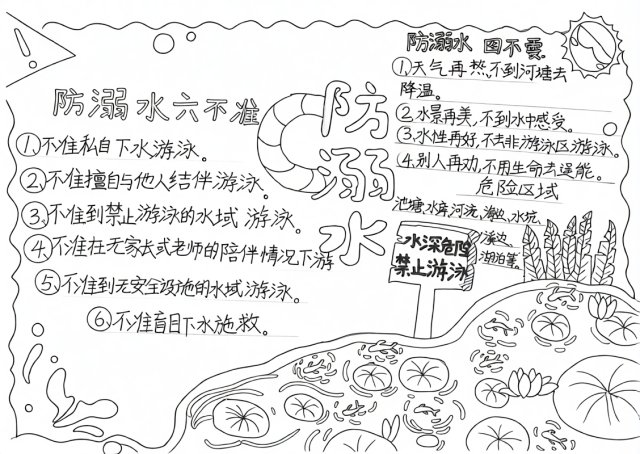 防溺水六不准
①、不准私自下水游泳。
②、不准擅自与他人结伴游泳。
③、不准到禁止游泳的水域游泳。
④、不准在无家长或老师的陪伴情况下游
⑤、不准到无安全设施的水域游泳。
⑥、不准盲目下水施救。
防溺水
防溺水 四不要
①、天气再热,不到河塘去
降温。
②水景再美,不到水中感受。
③.水性再好,不去非游泳区游泳。
④.别人再劝,不用生命去逞能。
危险区域
池塘、水库,河流、海边、水坑、
溪边、
湖泊等。
水深危险
禁止游泳